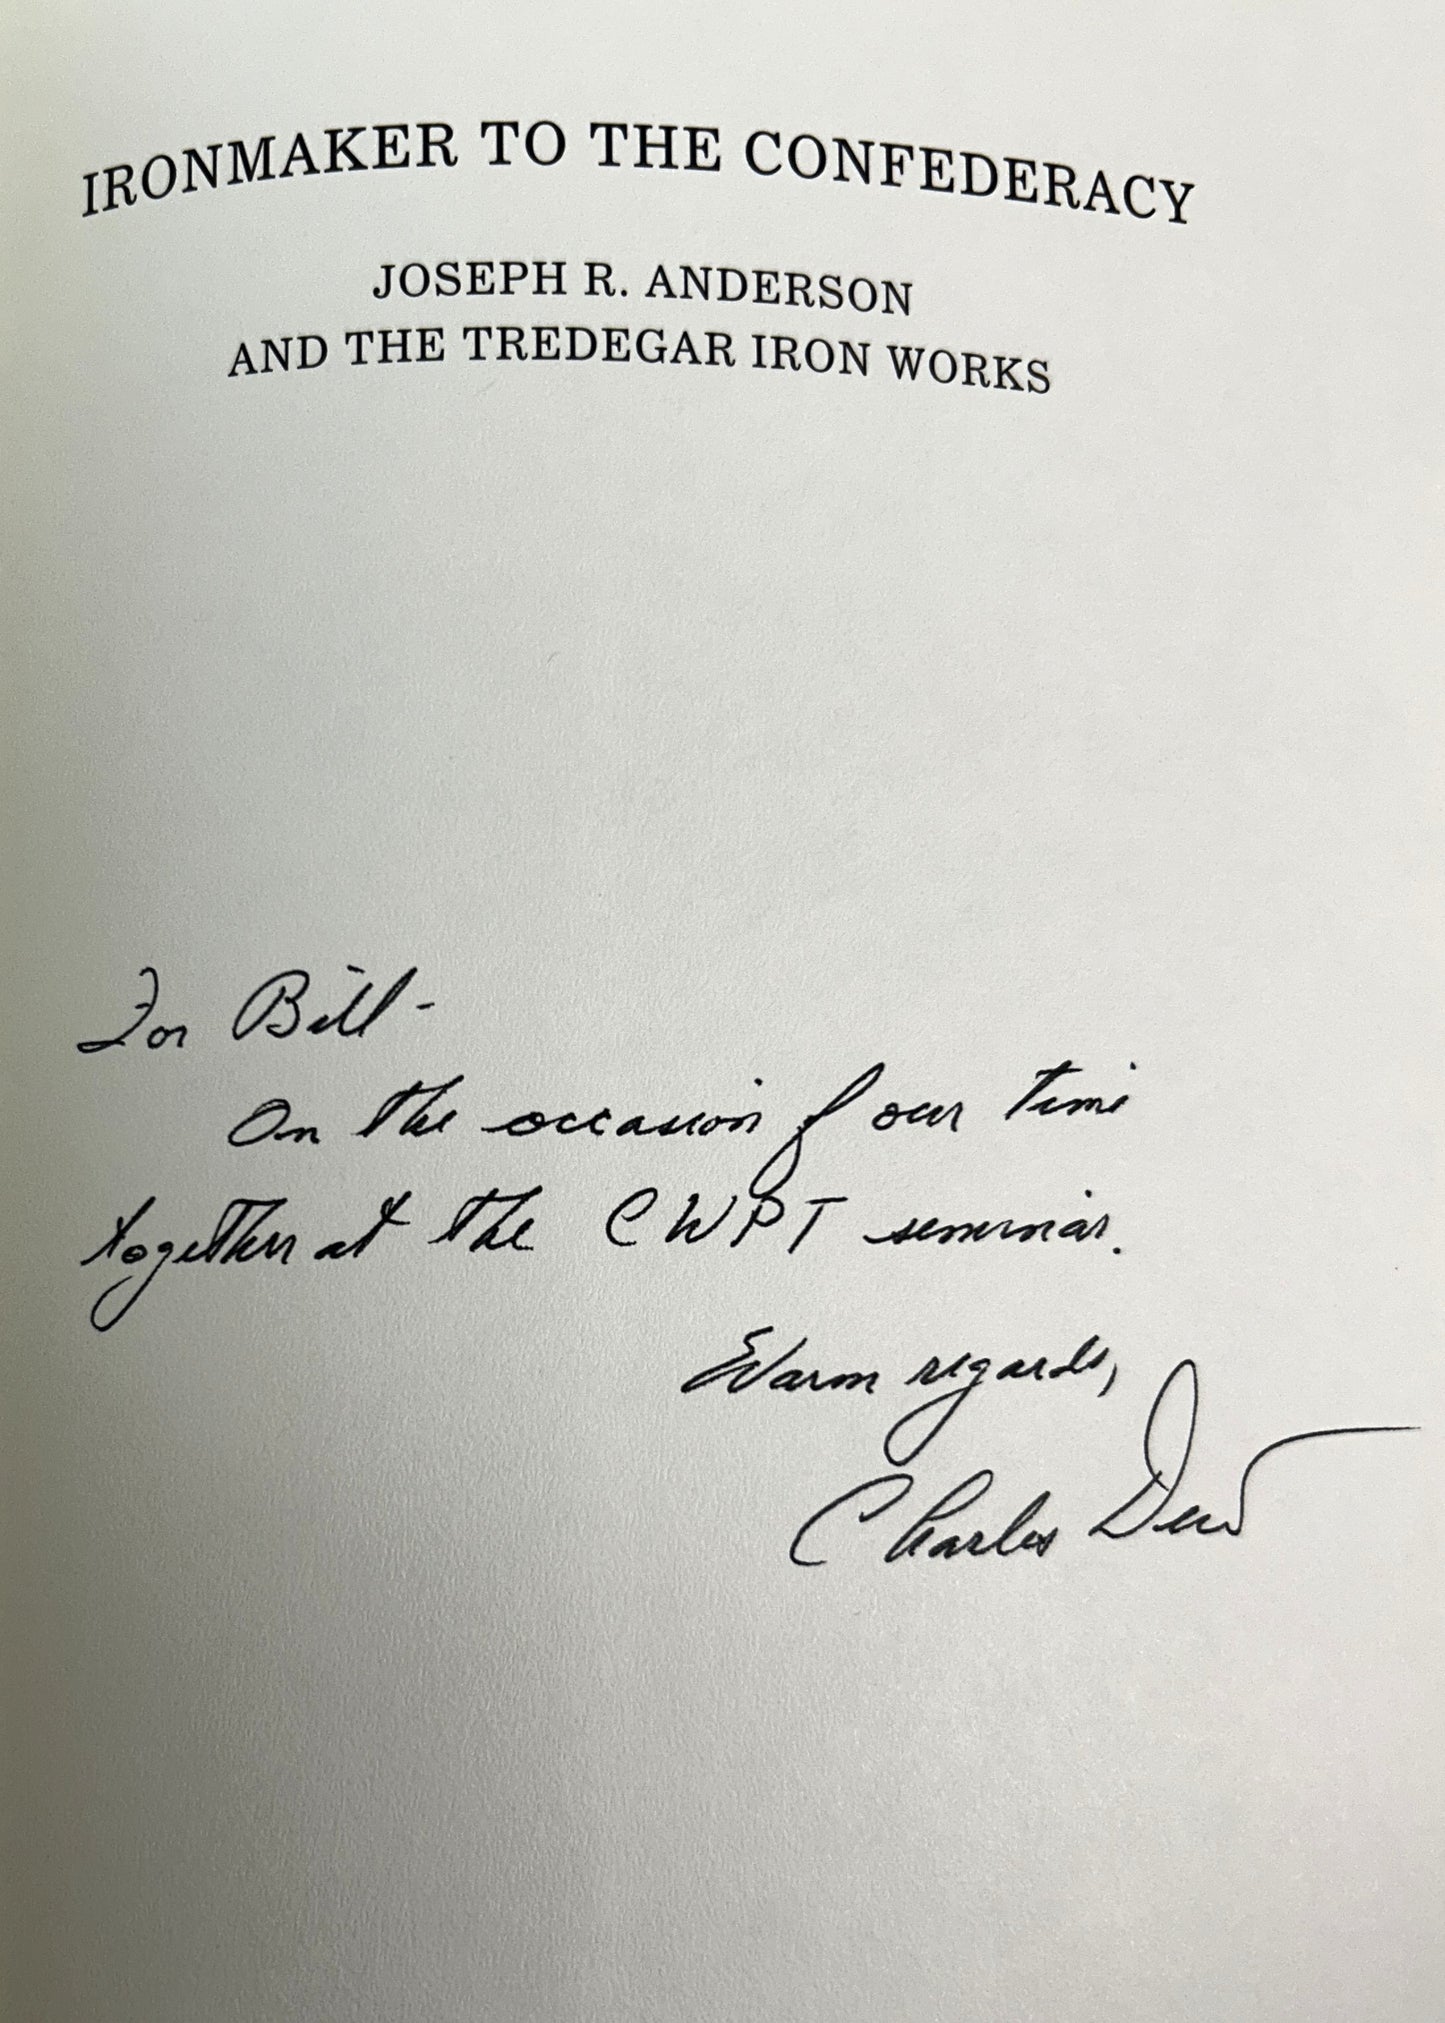 IRONMAKER TO THE CONFEDERACY
JOSEPH R. ANDERSON
AND THE TREDEGAR IRON WORKS
For Bill -
On the occasion of our time
together at the CWPT seminar.
Warm regards,
Charles Dew